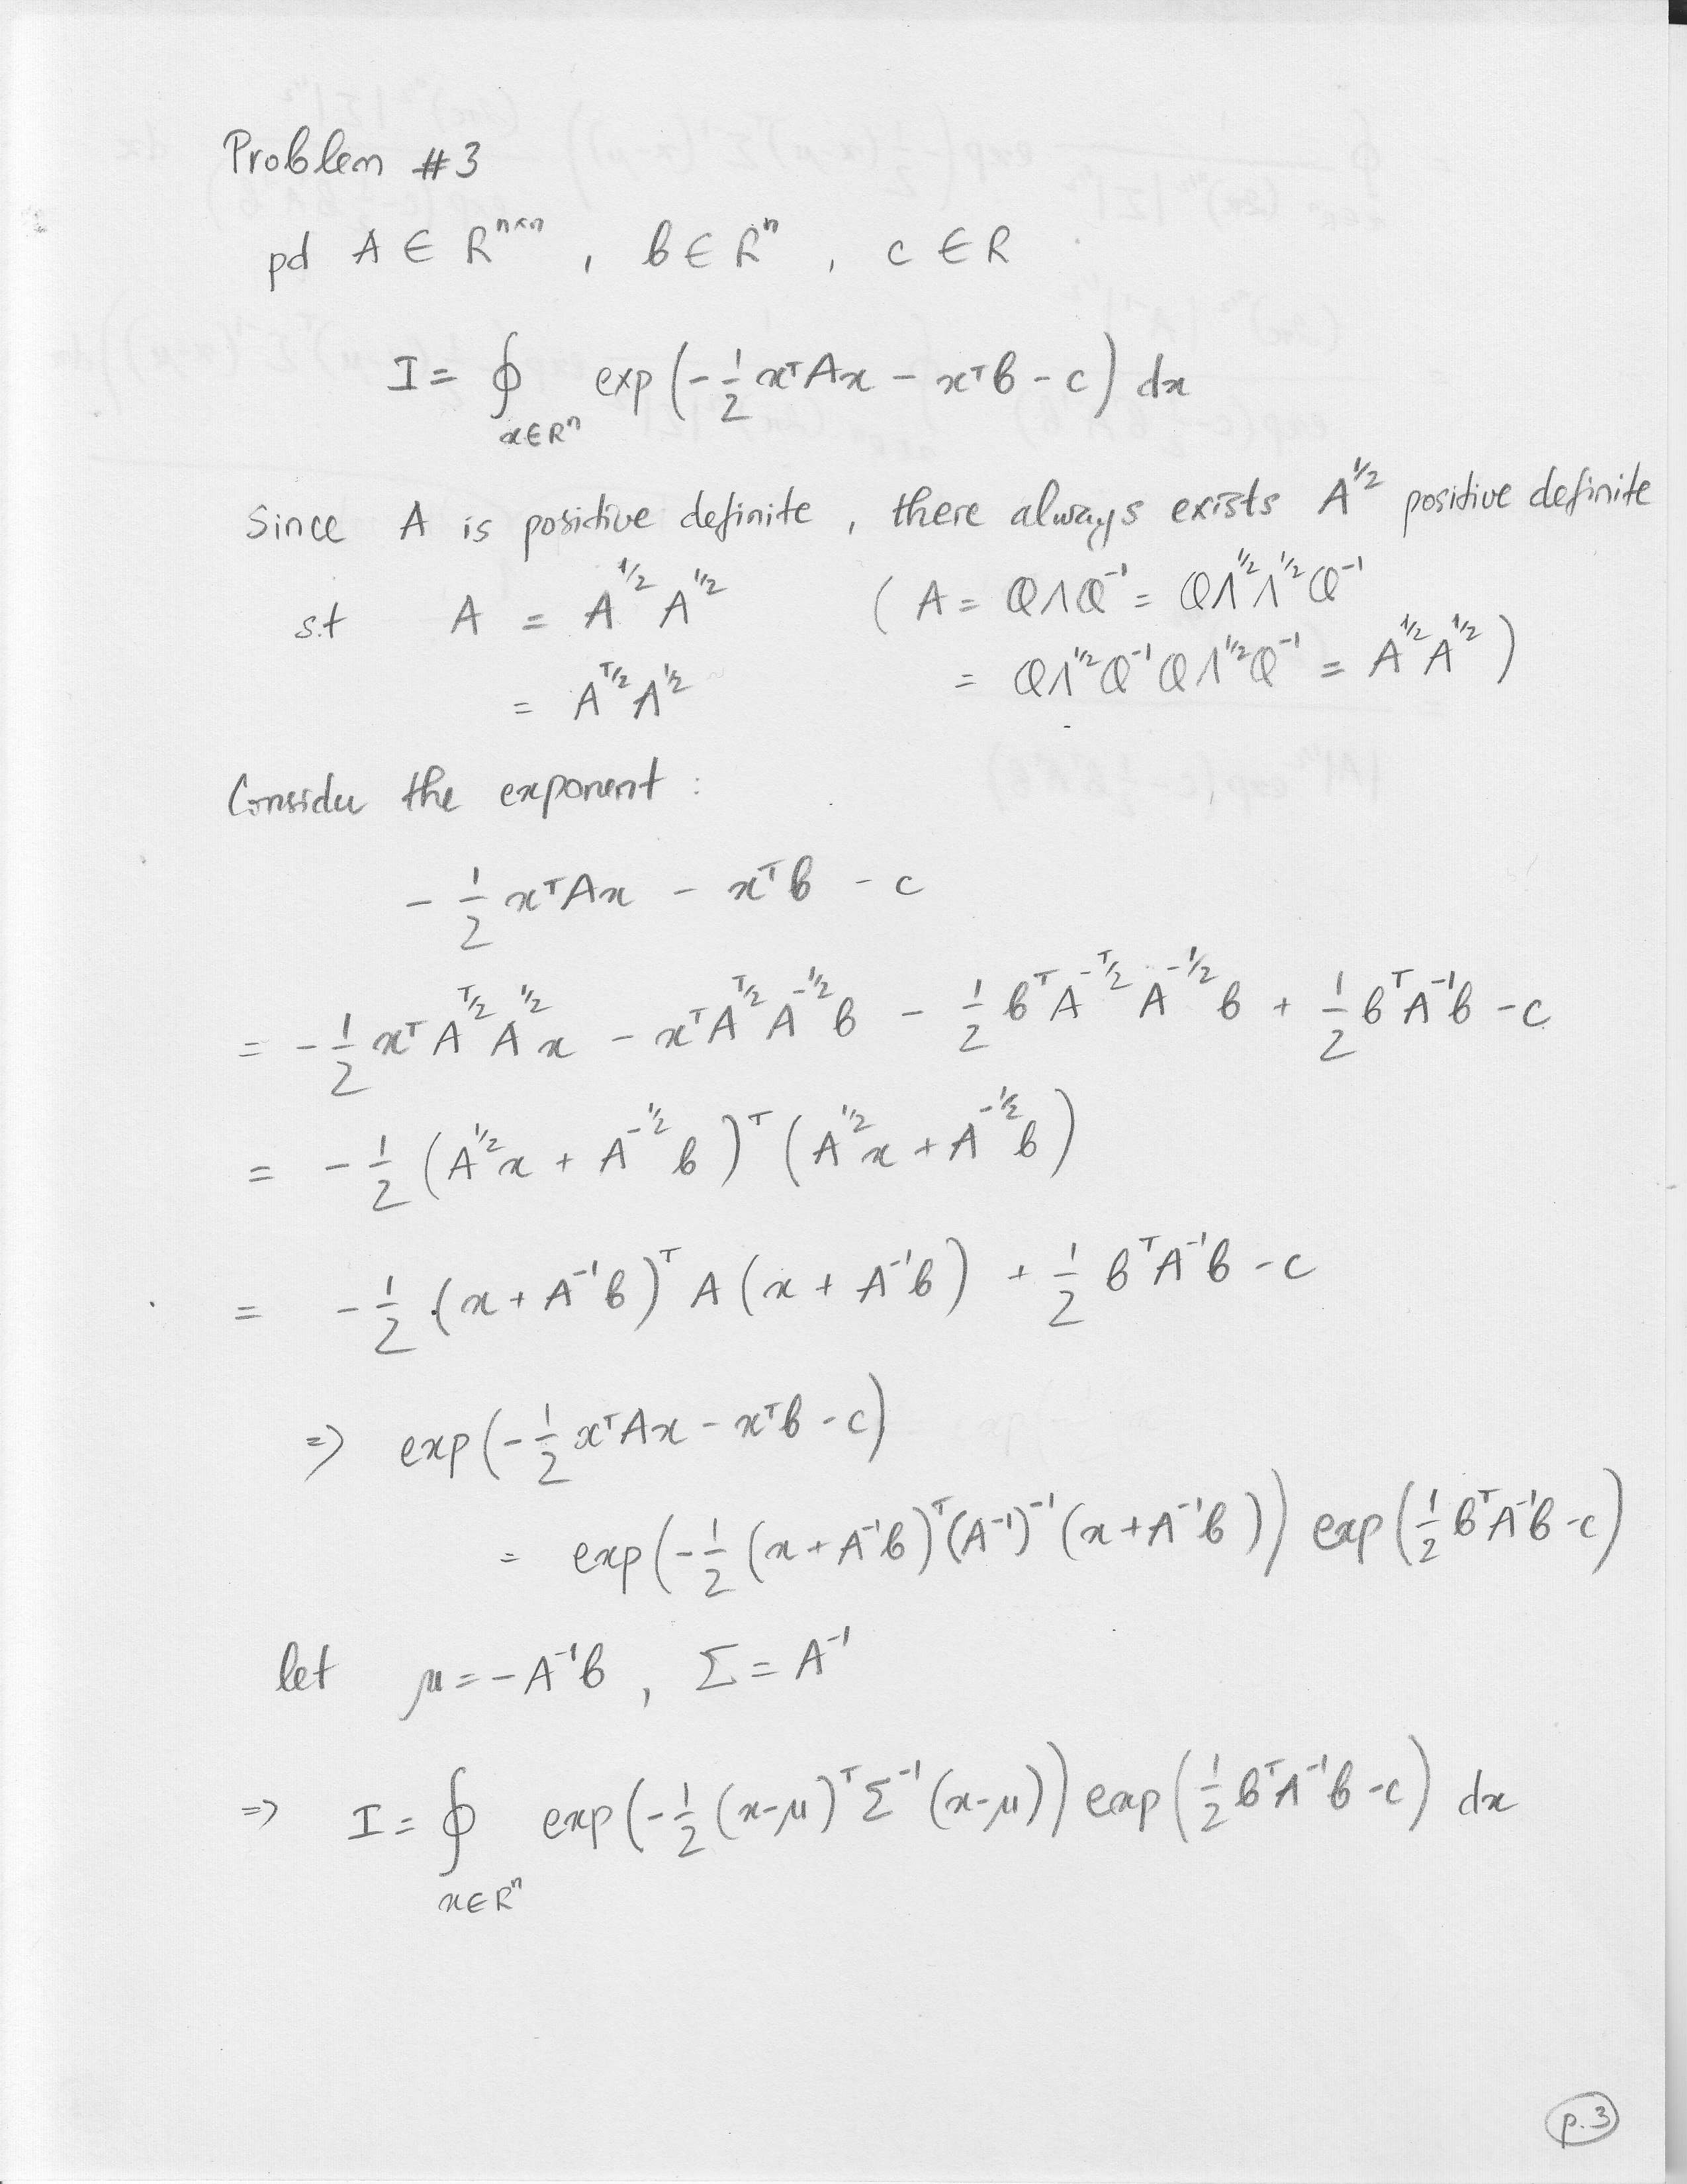 Problem #3
pd A ∈ R^{n×n} , b ∈ R^n , c ∈ R
I = ∮_{x∈R^n} exp(-1/2 x^T A x - x^T b - c) dx
Since A is positive definite , there always exists A^{1/2} positive definite
s.t A = A^{1/2} A^{1/2} ( A = QΛQ^{-1} = QΛ^{1/2}Λ^{1/2}Q^{-1}
= A^{T/2} A^{1/2} = QΛ^{1/2}Q^{-1}QΛ^{1/2}Q^{-1} = A^{1/2}A^{1/2} )
Consider the exponent :
- 1/2 x^T A x - x^T b - c
= - 1/2 x^T A^{T/2} A^{1/2} x - x^T A^{T/2} A^{-1/2} b - 1/2 b^T A^{-T/2} A^{-1/2} b + 1/2 b^T A^{-1} b - c
= - 1/2 (A^{1/2} x + A^{-1/2} b)^T (A^{1/2} x + A^{-1/2} b)
= - 1/2 (x + A^{-1} b)^T A (x + A^{-1} b) + 1/2 b^T A^{-1} b - c
⇒ exp(-1/2 x^T A x - x^T b - c)
= exp(-1/2 (x + A^{-1} b)^T (A^{-1})^{-1} (x + A^{-1} b)) exp(1/2 b^T A^{-1} b - c)
let μ = -A^{-1} b , Σ = A^{-1}
⇒ I = ∮_{x∈R^n} exp(-1/2 (x-μ)^T Σ^{-1} (x-μ)) exp(1/2 b^T A^{-1} b - c) dx
p.3